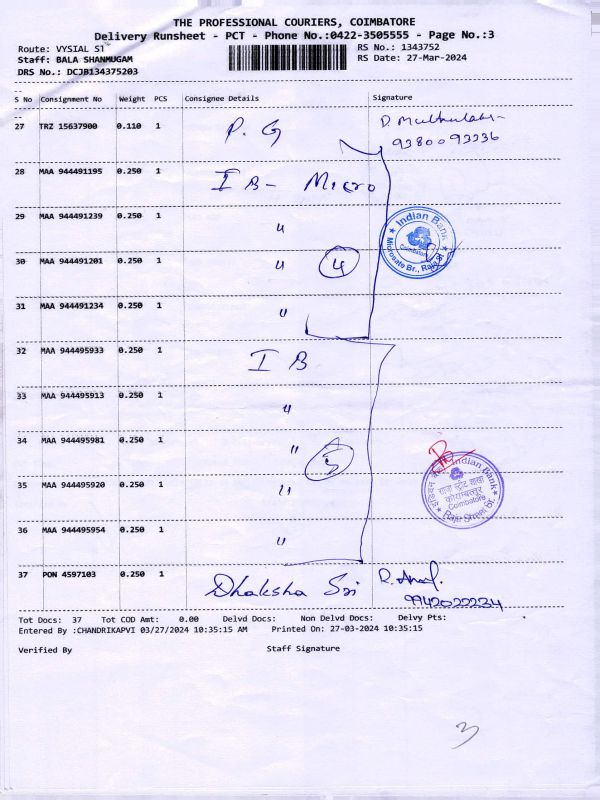 THE PROFESSIONAL COURIERS, COIMBATORE
Delivery Runsheet - PCT - Phone No.:0422-3505555 - Page No.:3
Route: VYSIAL ST
RS No.: 1343752
Staff: BALA SHANMUGAM
RS Date: 27-Mar-2024
DRS No.: DCJB134375203
S No Consignment No Weight PCS Consignee Details Signature
27 TRZ 15637900 0.110 1 P. G
9380093336
28 MAA 944491195 0.250 1 IB - Micro
29 MAA 944491239 0.250 1 "
Indian Bank
Coimbatore
Microsate Br., Raja St
30 MAA 944491201 0.250 1 " 4
31 MAA 944491234 0.250 1 "
32 MAA 944495933 0.250 1 IB
33 MAA 944495913 0.250 1 "
34 MAA 944495981 0.250 1 " 5
35 MAA 944495920 0.250 1 "
Indian Bank
राजा स्ट्रीट शाखा
कोयम्बत्तूर
Coimbatore
Raja Street Br.
36 MAA 944495954 0.250 1 "
37 PON 4597103 0.250 1 Dhaksha Sri
9942022234
Tot Docs: 37 Tot COD Amt: 0.00 Delvd Docs: Non Delvd Docs: Delvy Pts:
Entered By :CHANDRIKAPVI 03/27/2024 10:35:15 AM Printed On: 27-03-2024 10:35:15
Verified By Staff Signature
3